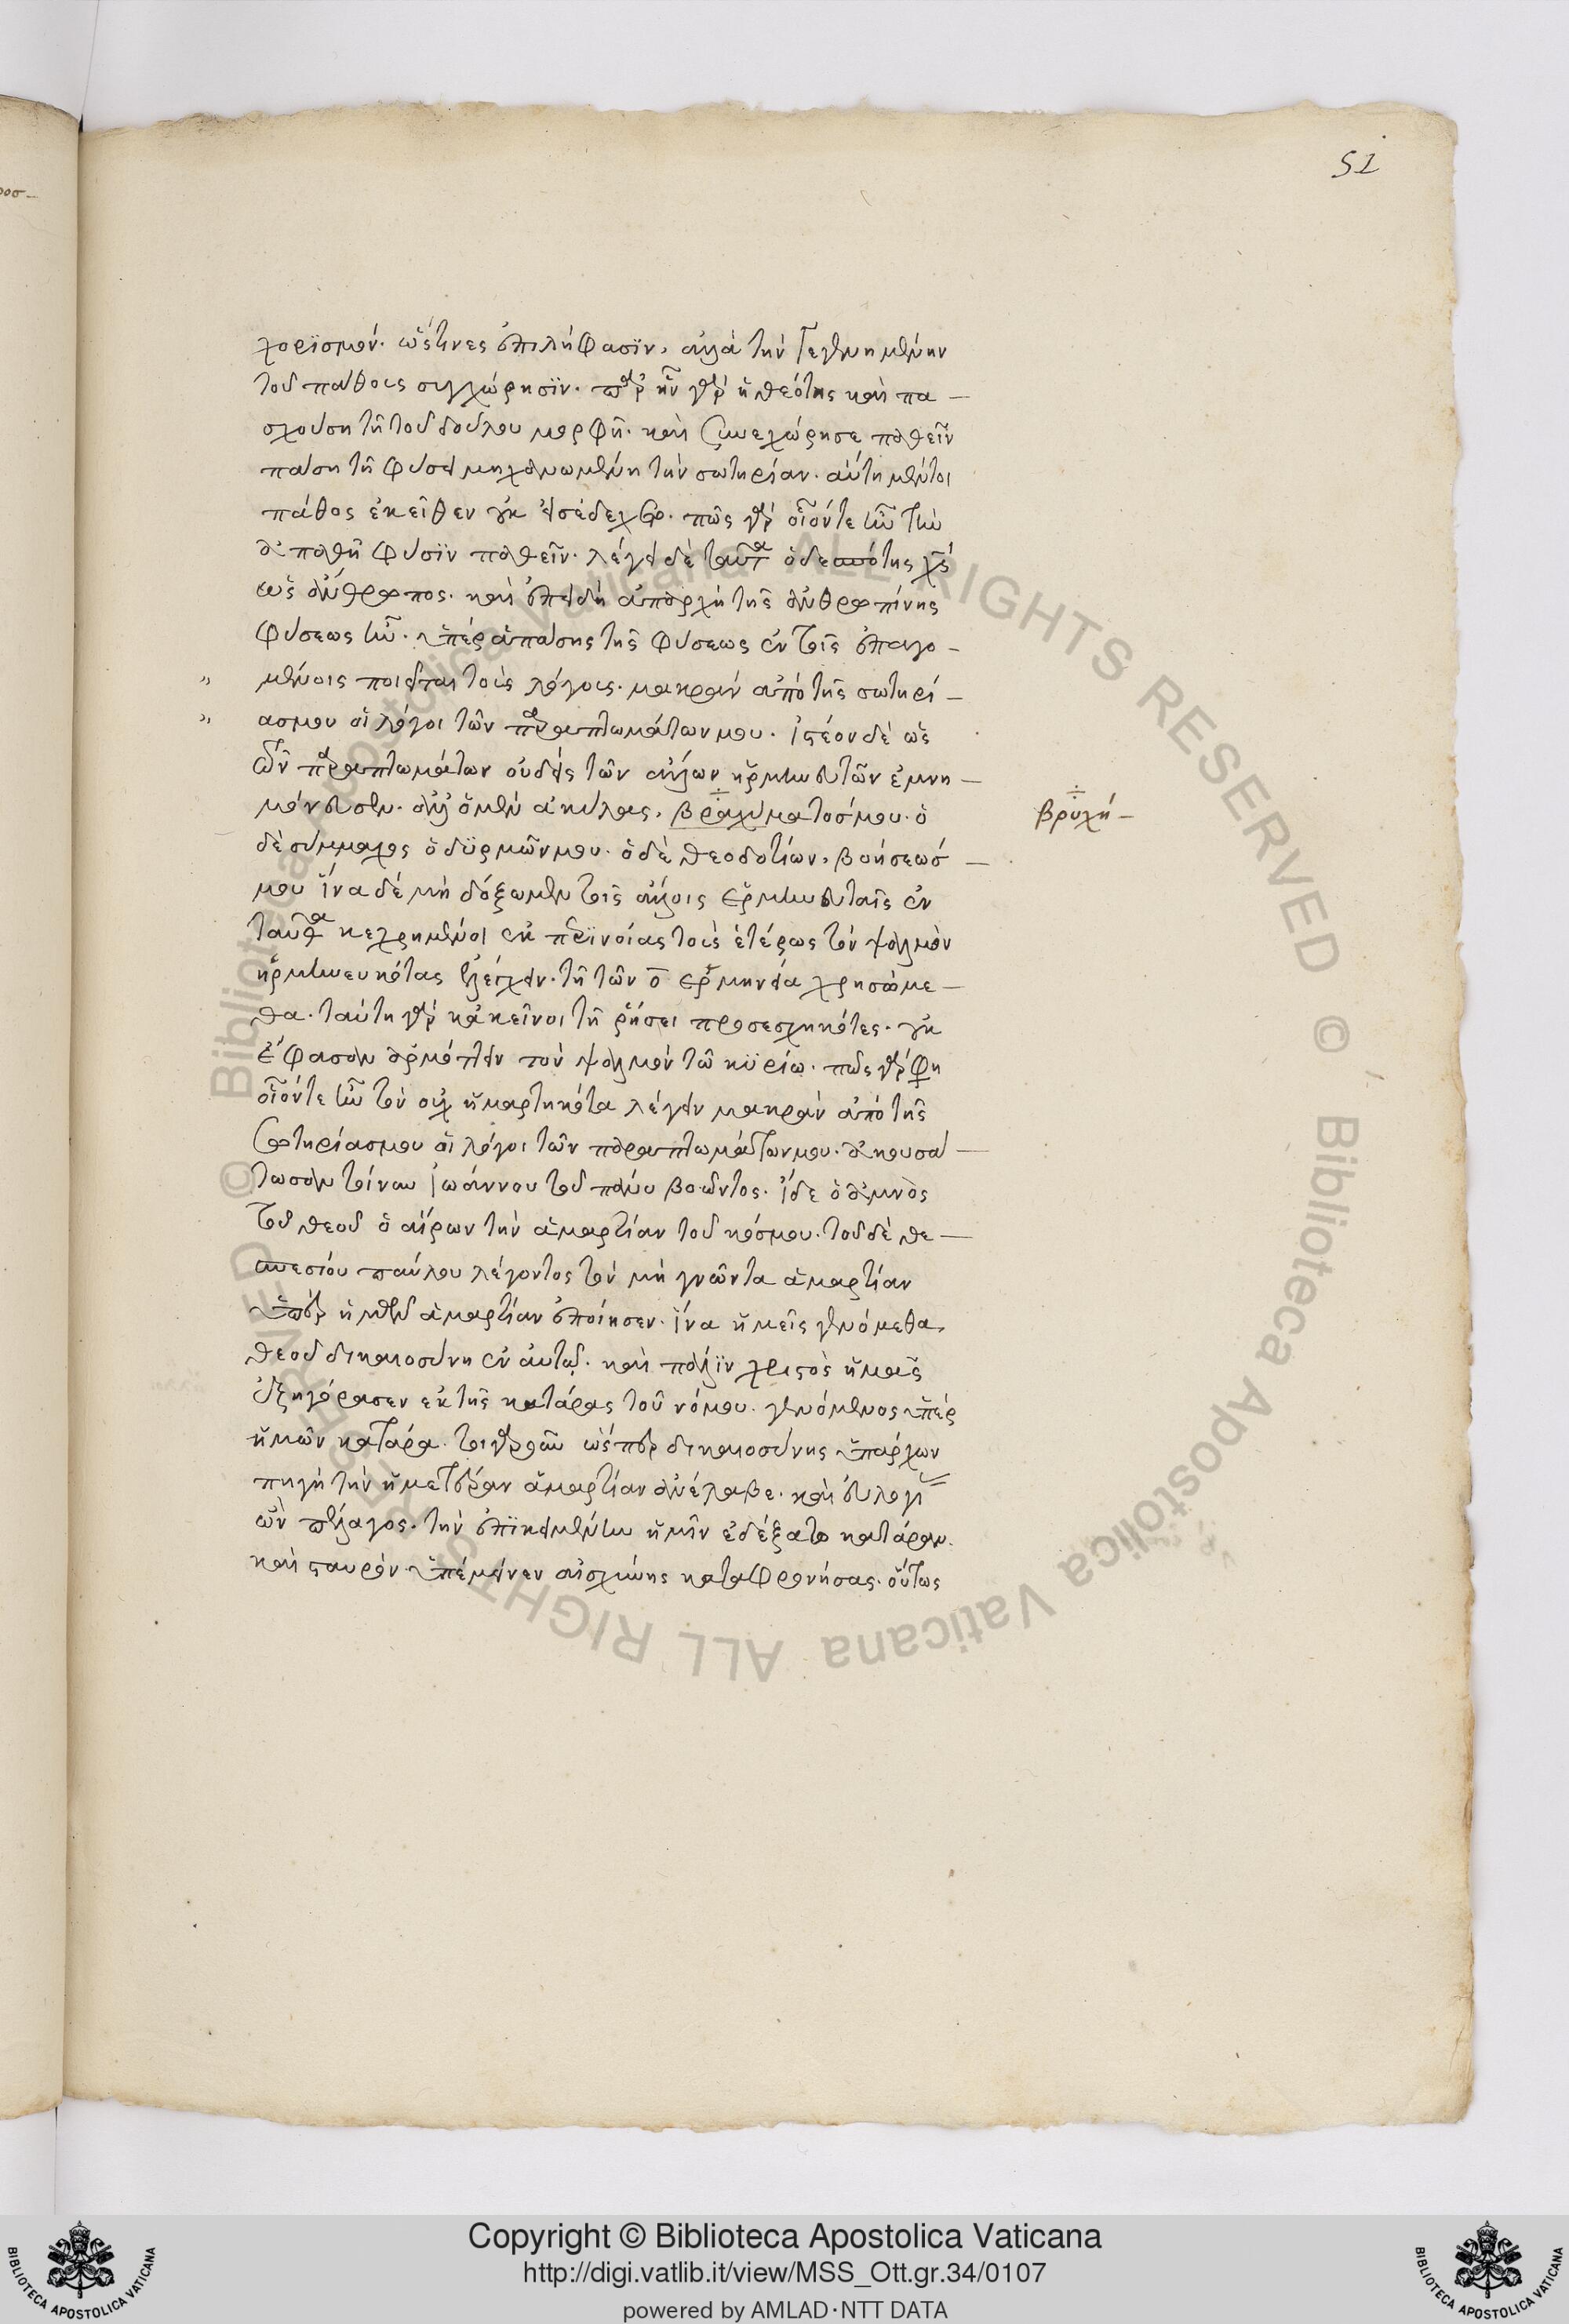 51
χορισμόν· ὥς τινες ὑπειλήφασιν, ἀλλὰ τὴν γεγενημένην
τοῦ πάθους συγχώρησιν· παρῆν γὰρ ἡ θεότης καὶ πα-
σχούση τῆ τοῦ δούλου μορφῆ· καὶ συνεχώρησε παθεῖν
πάση τῆ φύσει μηχανωμένη τὴν σωτηρίαν· αὐτὴ μέντοι
πάθος ἐκεῖθεν οὐκ εἰσεδέχετο· πῶς γὰρ οἷόν τε ἦν τὴν
ἀπαθῆ φύσιν παθεῖν· λέγει δὲ ταῦτα ὁ δεσπότης χς
ὡς ἄνθρωπος· καὶ ἐπειδὴ ἀπαρχὴ τῆς ἀνθρωπίνης
φύσεως ἦν· ὑπὲρ ἁπάσης τῆς φύσεως ἐν τοῖς ἐπαγο-
" μένοις ποιεῖται τοὺς λόγους· μακρὰν ἀπὸ τῆς σωτηρί-
" ας μου οἱ λόγοι τῶν παραπτωμάτων μου· ἰστέον δὲ ὡς
τῶν παραπτωμάτων οὐδεὶς τῶν ἄλλων ἑρμηνευτῶν ἐμνη-
μόνευσεν· ἀλλ' ὁ μὲν ἀκύλας, βραχύματός μου· ὁ
βρυχή-
δὲ σύμμαχος ὀδυρμῶν μου· ὁ δὲ θεοδοτίων, βοήσεώσ
μου ἵνα δὲ μὴ δόξωμεν τοῖς ἄλλοις ἑρμηνευταῖς ἐν
ταῦθα κεχρημένοι ἐκ περινοίας τοὺς ἑτέρως τὸν ψαλμὸν
ἡρμηνευκότας ἐλέγχειν· τῆ τῶν ο ἑρμηνεία χρησώμε-
θα· ταύτη γὰρ κἀκεῖνοι τῆ ῥήσει προσεσχηκότες· οὐκ
ἔφασαν ἁρμόττειν τὸν ψαλμὸν τῶ κυρίω· πῶς γὰρ φη
οἷόν τε ἦν τὸν οὐχ ἡμαρτηκότα λέγειν μακρὰν ἀπὸ τῆς
σωτηρίας μου οἱ λόγοι τῶν παραπτωμάτων μου· ἀκουσά-
τωσαν τοίνυν ἰωάννου τοῦ πάνυ βοῶντος· ἴδε ὁ ἀμνὸς
τοῦ θεοῦ ὁ αἴρων τὴν ἁμαρτίαν τοῦ κόσμου· τοῦ δὲ θε-
σπεσίου παύλου λέγοντος τὸν μὴ γνῶντα ἁμαρτίαν
ὑπὲρ ἡμῶν ἁμαρτίαν ἐποίησεν· ἵνα ἡμεῖς γενόμεθα,
θεοῦ δικαιοσύνη ἐν αὐτῶ· καὶ πάλιν χριστὸς ἡμᾶς
ἐξηγόρασεν ἐκ τῆς κατάρας τοῦ νόμου· γενόμενος ὑπὲρ
ἡμῶν κατάρα· τοιγαροῦν ὥσπερ δικαιοσύνης ὑπάρχων
πηγὴ τὴν ἡμετέραν ἁμαρτίαν ἀνέλαβε· καὶ εὐλογί
ῶν πέλαγος· τὴν ἐπικειμένην ἡμῖν ἐδέξατο κατάραν·
καὶ σταυρὸν ὑπέμεινεν αἰσχύνης καταφρονήσας· οὕτως
Copyright © Biblioteca Apostolica Vaticana
http://digi.vatlib.it/view/MSS_Ott.gr.34/0107
powered by AMLAD·NTT DATA